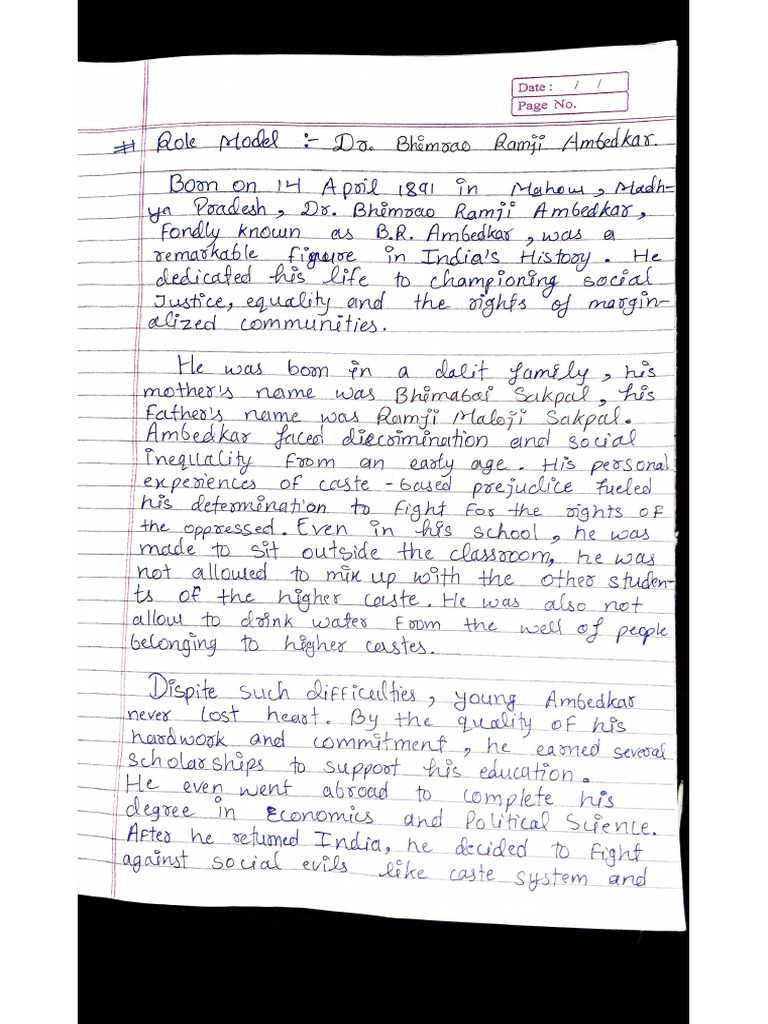 Date : / /
Page No.
# Role Model :- Dr. Bhimrao Ramji Ambedkar.
Born on 14 April 1891 in Mahow, Madh-
ya Pradesh, Dr. Bhimrao Ramji Ambedkar,
Fondly known as B.R. Ambedkar, was a
remarkable figure in India's History. He
dedicated his life to championing social
Justice, equality and the rights of margin-
alized communities.
He was born in a dalit family, his
mother's name was Bhimabai Sakpal, his
Father's name was Ramji Maloji Sakpal.
Ambedkar faced discrimination and social
inequality from an early age. His personal
experiences of caste-based prejudice fueled
his determination to fight for the rights of
the oppressed. Even in his school, he was
made to sit outside the classroom, he was
not allowed to mix up with the other studen-
ts of the higher caste. He was also not
allow to drink water from the well of people
belonging to higher castes.
Dispite such difficulties, young Ambedkar
never lost heart. By the quality of his
hardwork and commitment, he earned several
scholarships to support his education.
He even went abroad to complete his
degree in Economics and Political Science.
After he returned India, he decided to fight
against social evils like caste system and